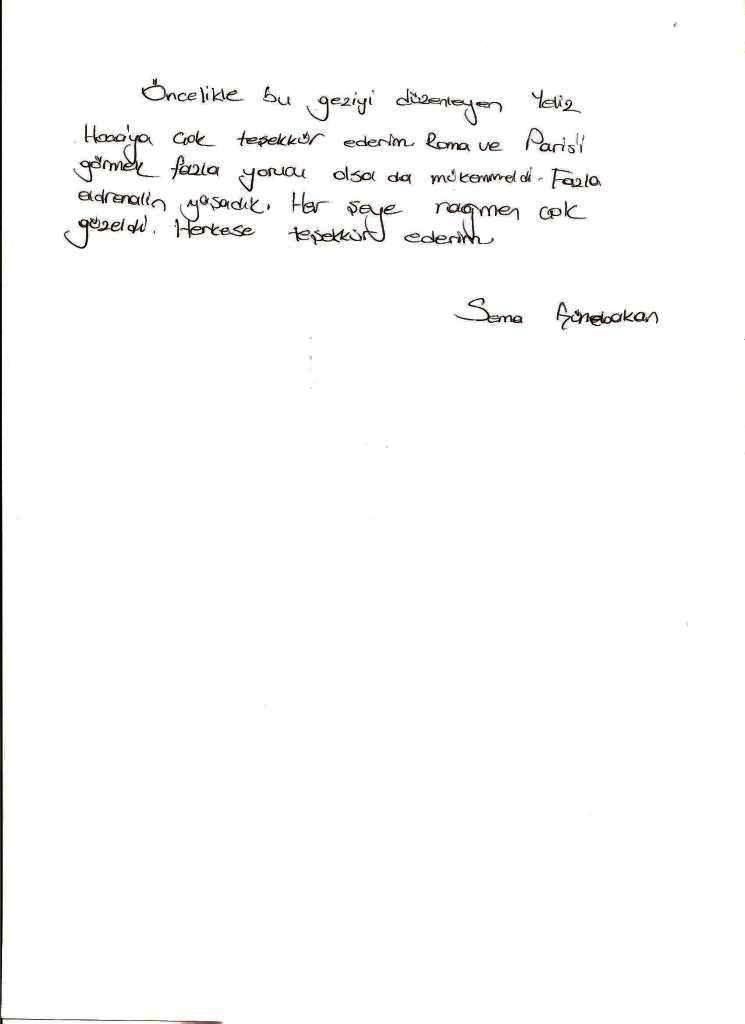 Öncelikle bu geziyi düzenleyen Yeliz
Hoca'ya çok teşekkür ederim. Roma ve Paris'i
görmek fazla yorucu olsa da mükemmeldi. Fazla
adrenalin yaşadık. Her şeye rağmen çok
güzeldi. Herkese teşekkür ederim
Sema Günebakan